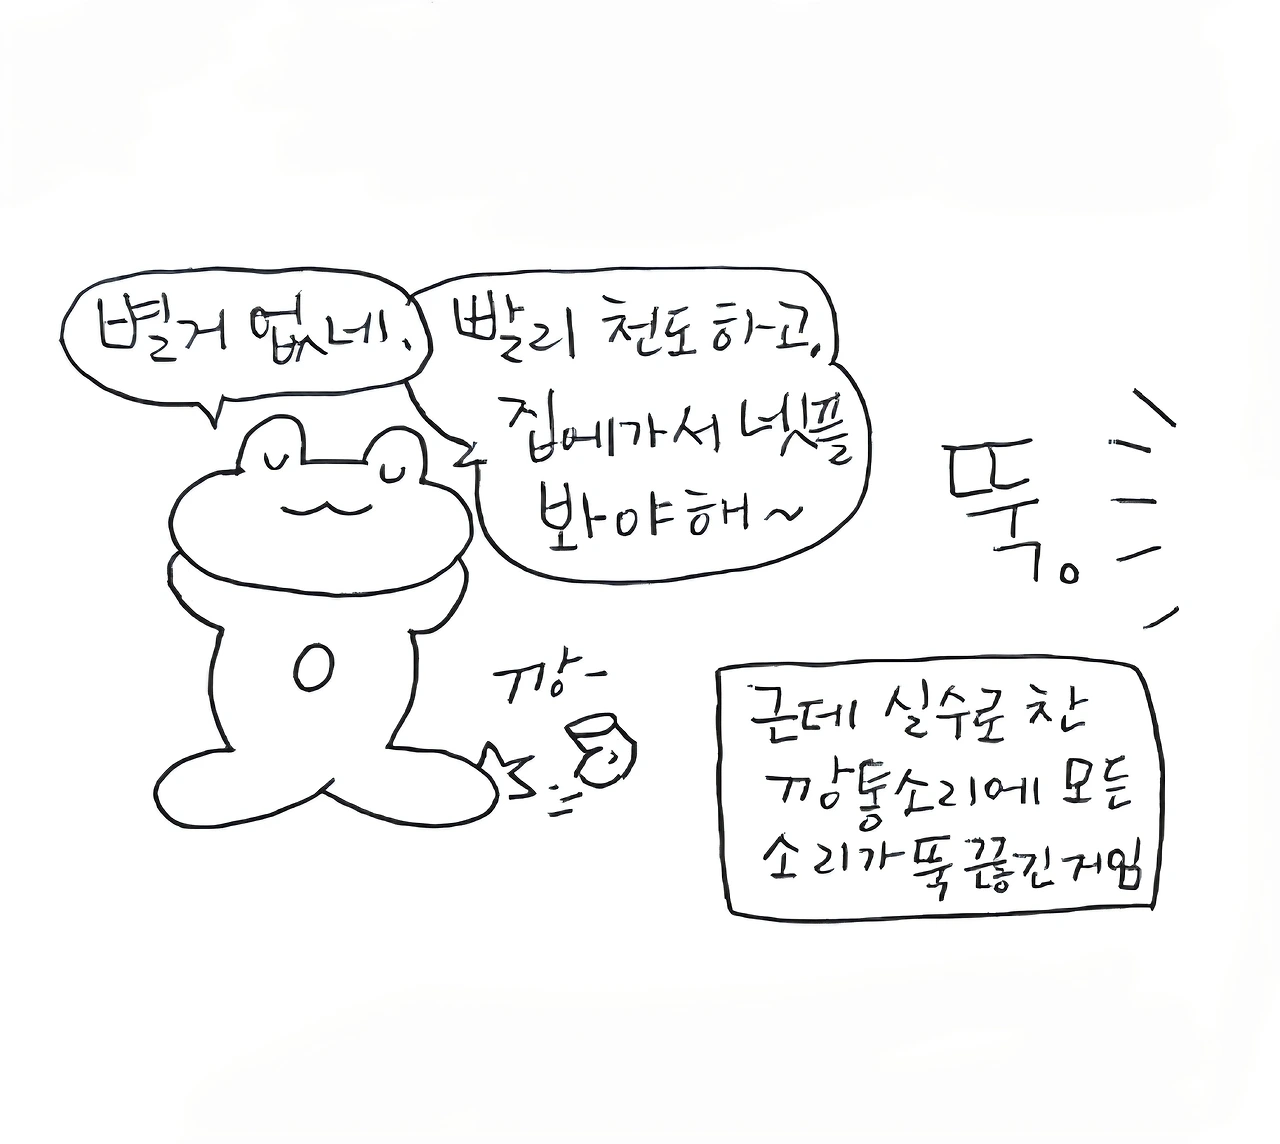 별거 없네.
빨리 천도하고,
집에가서 넷플
봐야해~
뚝。
깡-
근데 실수로 찬
깡통소리에 모든
소리가 뚝 끊긴거임